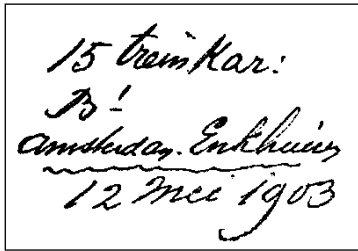 15 treinkar:
B!
Amsterdam-Enkhuizen
12 Mei 1903